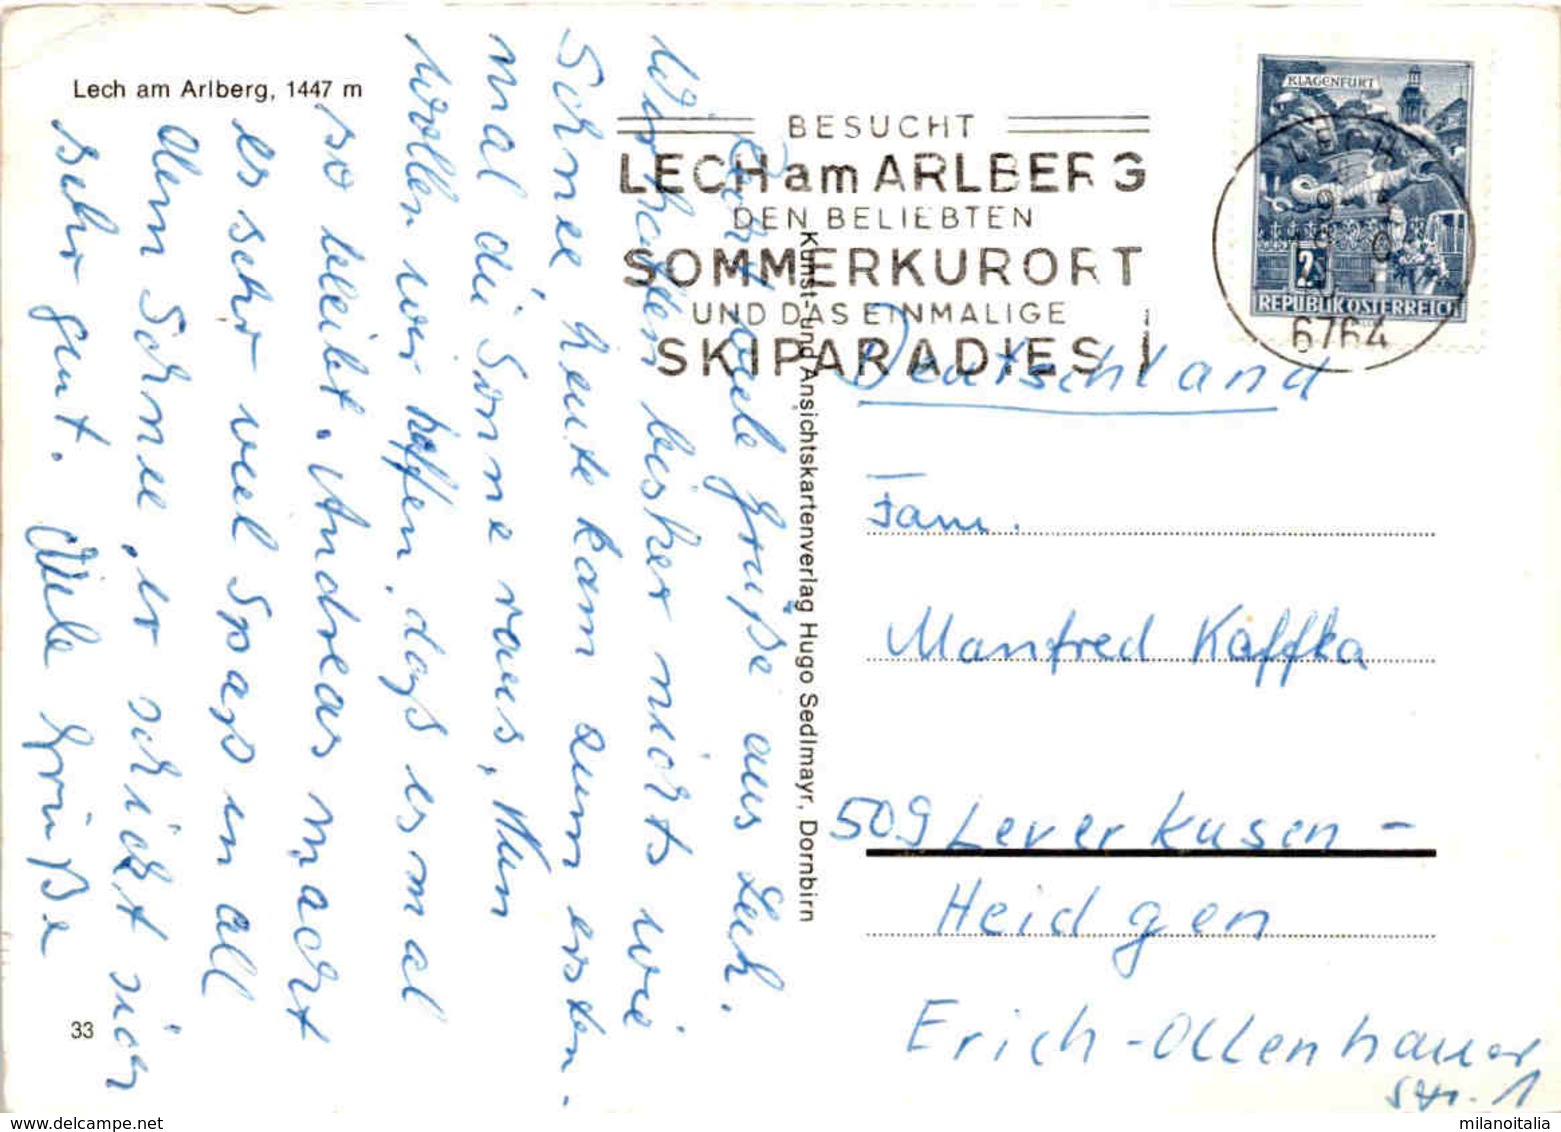 Lech am Arlberg, 1447 m
Viele Grüße aus Lech.
Wir hatten bisher nichts wie
Schnee, heute kam zum ersten-
mal die Sonne raus. Nun
wollen wir hoffen, daß es mal
so bleibt. Andreas macht
es sehr viel Spaß in all
dem Schnee, er schickt sich
sehr gut. Viele Grüße
33
Kunst- und Ansichtskartenverlag Hugo Sedlmayr, Dornbirn
BESUCHT
LECH am ARLBERG
DEN BELIEBTEN
SOMMERKURORT
UND DAS EINMALIGE
SKIPARADIES !
KLAGENFURT
2S
REPUBLIK ÖSTERREICH
LECH
6764
Deutschland
Fam.
Manfred Kaffka
509 Leverkusen -
Heidgen
Erich-Ollenhauer
Str. 1
milanoitalia